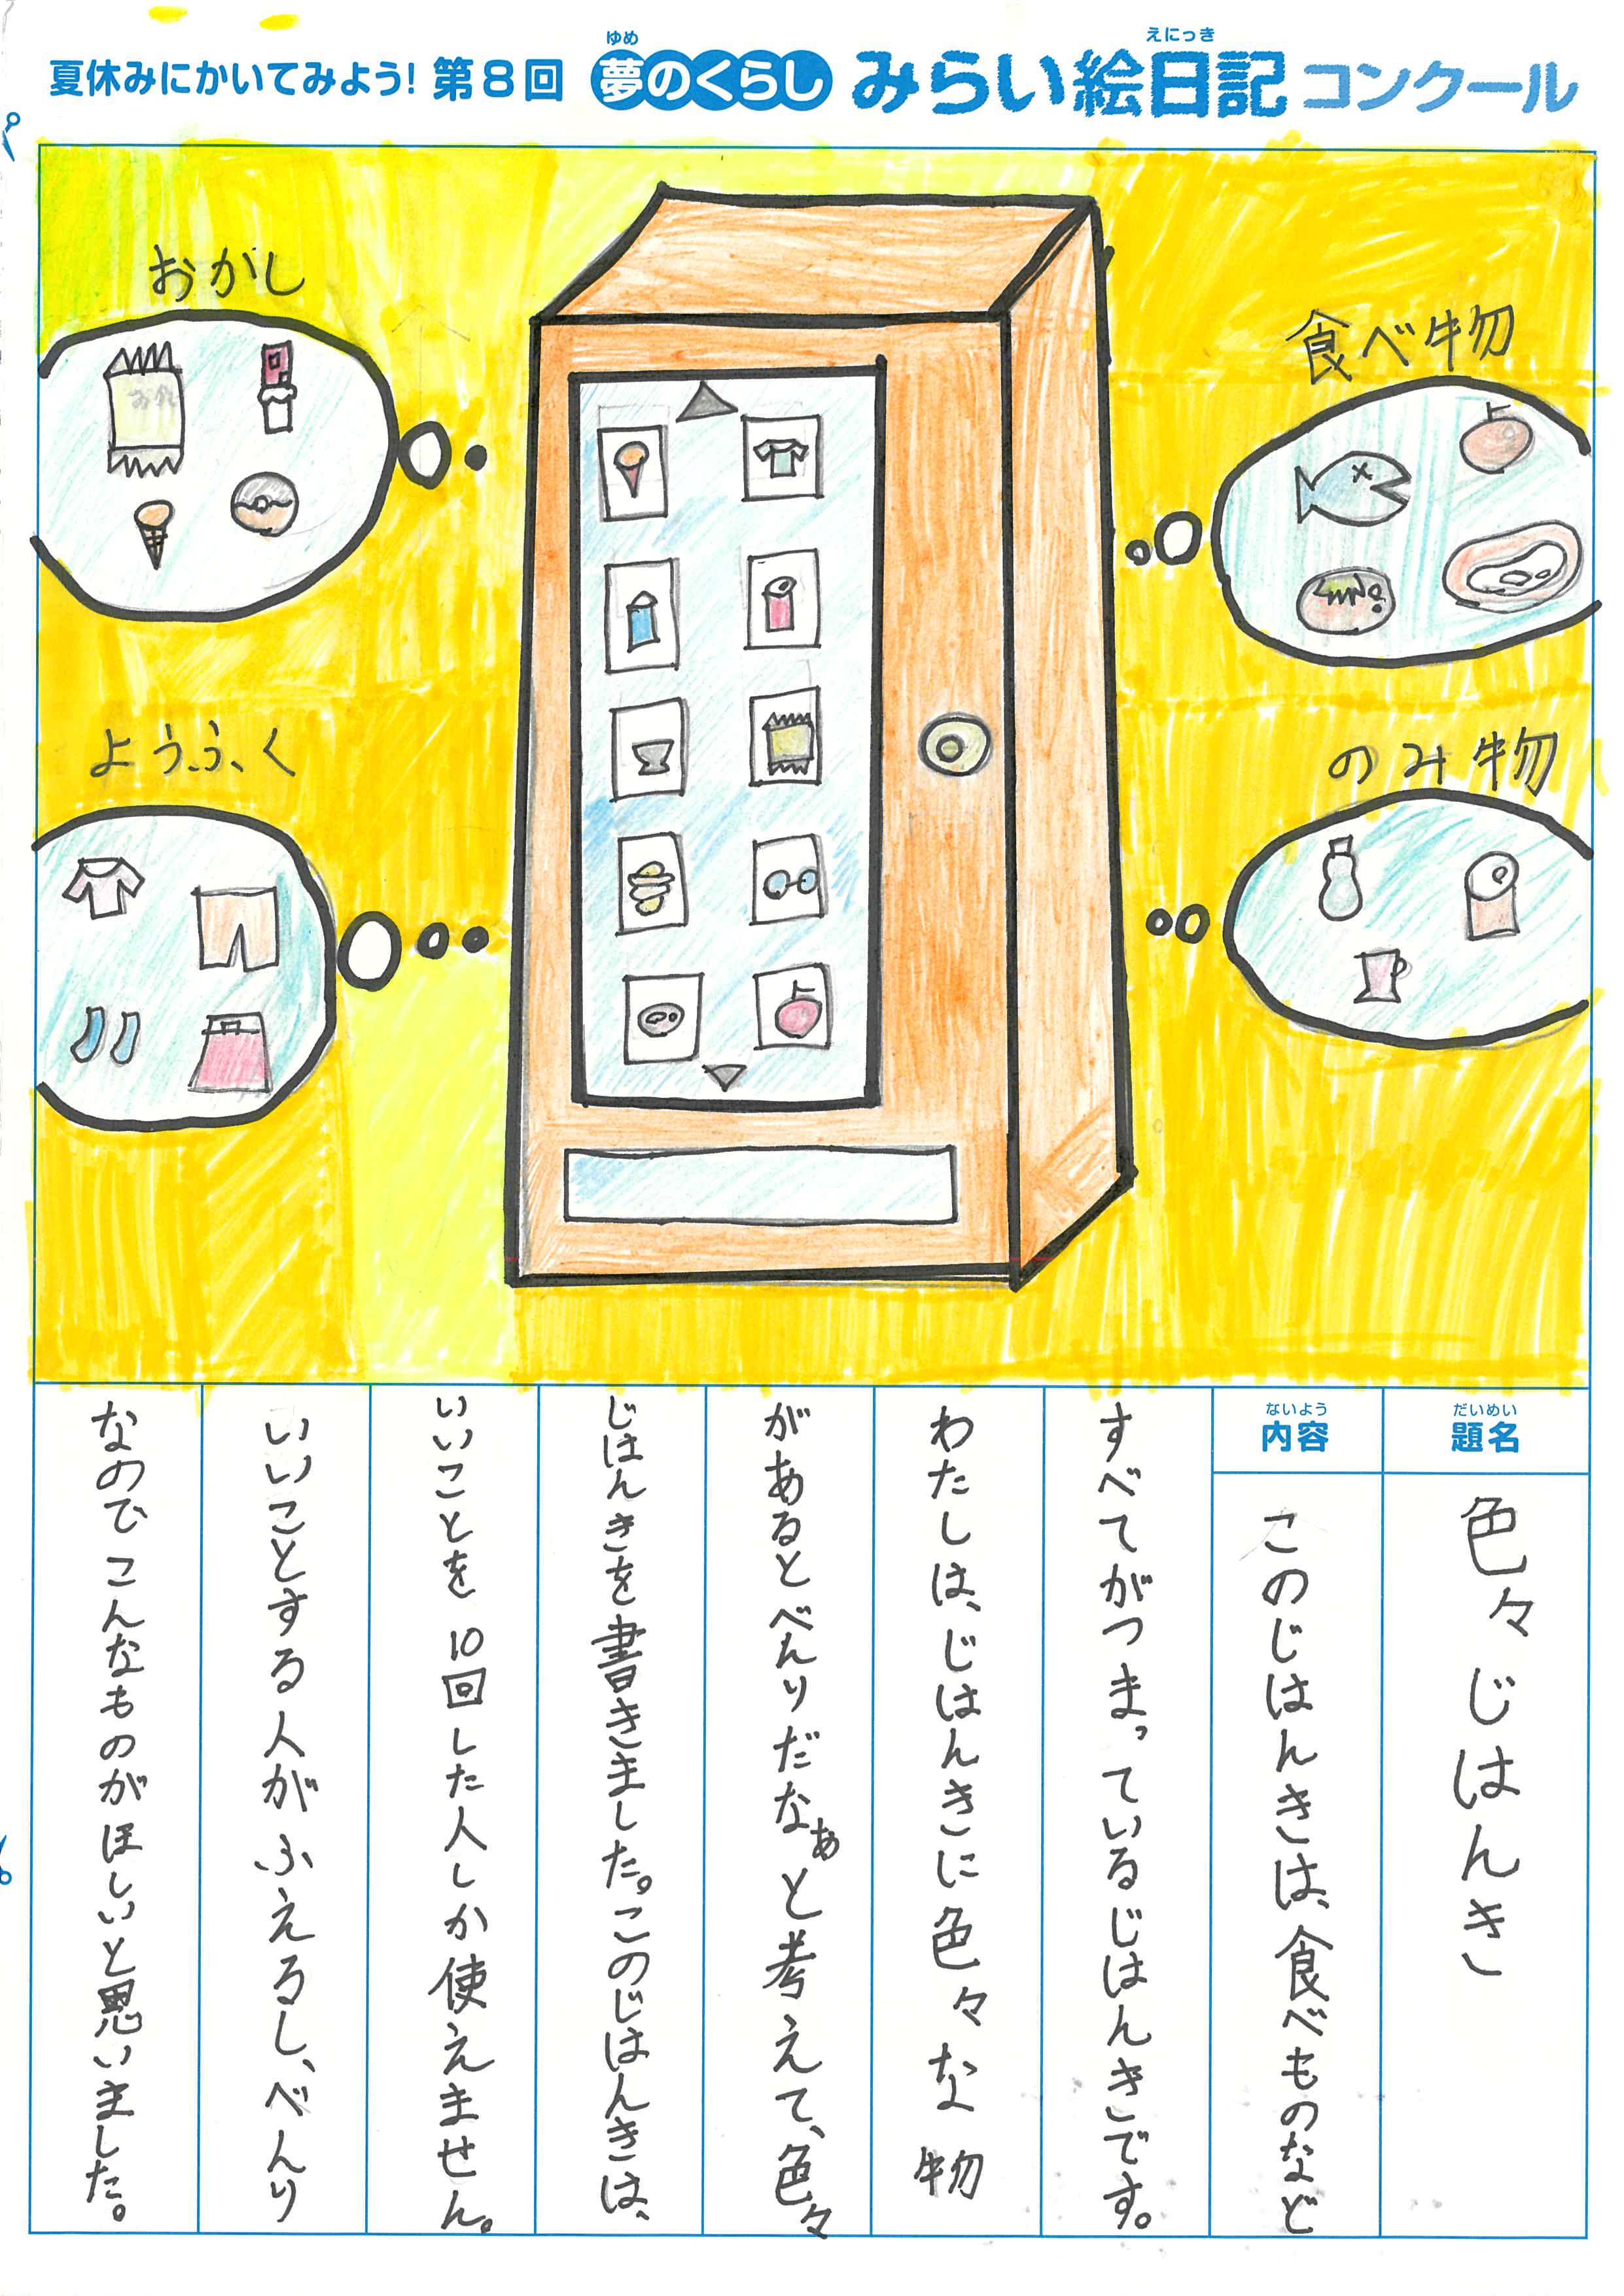 夏休みにかいてみよう! 第8回 夢のくらし みらい絵日記コンクール
ゆめ
えにっき
おかし
おかし
食べ物
ようふく
のみ物
だいめい
題名
色々じはんき
ないよう
内容
このじはんきは、食べものなど
すべてがつまっているじはんきです。
わたしは、じはんきに色々な物
があるとべんりだなぁと考えて、色々
じはんきを書きました。このじはんきは、
いいことを10回した人しか使えません。
いいことする人がふえるし、べんり
なのでこんなものがほしいと思いました。